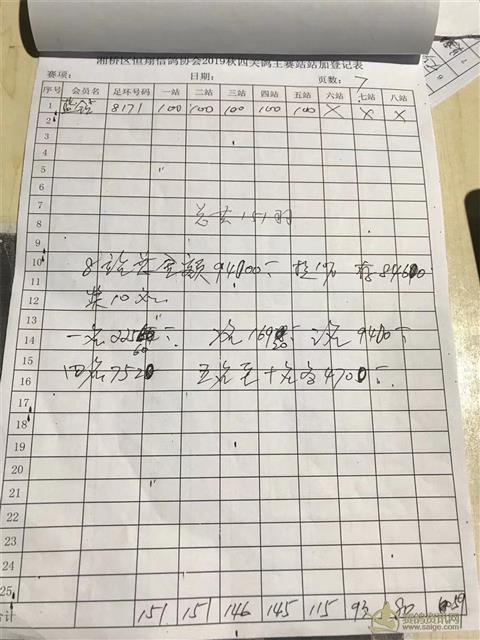 湘桥区恒翔信鸽协会2019秋四关鸽王赛站站加登记表
赛项： 日期： 页数：7
序号 会员名 足环号码 一站 二站 三站 四站 五站 六站 七站 八站
1 8171 100 100 100 100 100 X X X
2
3
4
5
6
7
8 151羽
9
10 8站总金额94000 存84600
11
12 奖10名
13
14 一名 9400
15 60 20
16 四名7520 五名至十名各4700
17
18
19
20
21
22
23
24
25
合计 151 151 146 145 115 93 80
赛鸽资讯网
www.saige.com